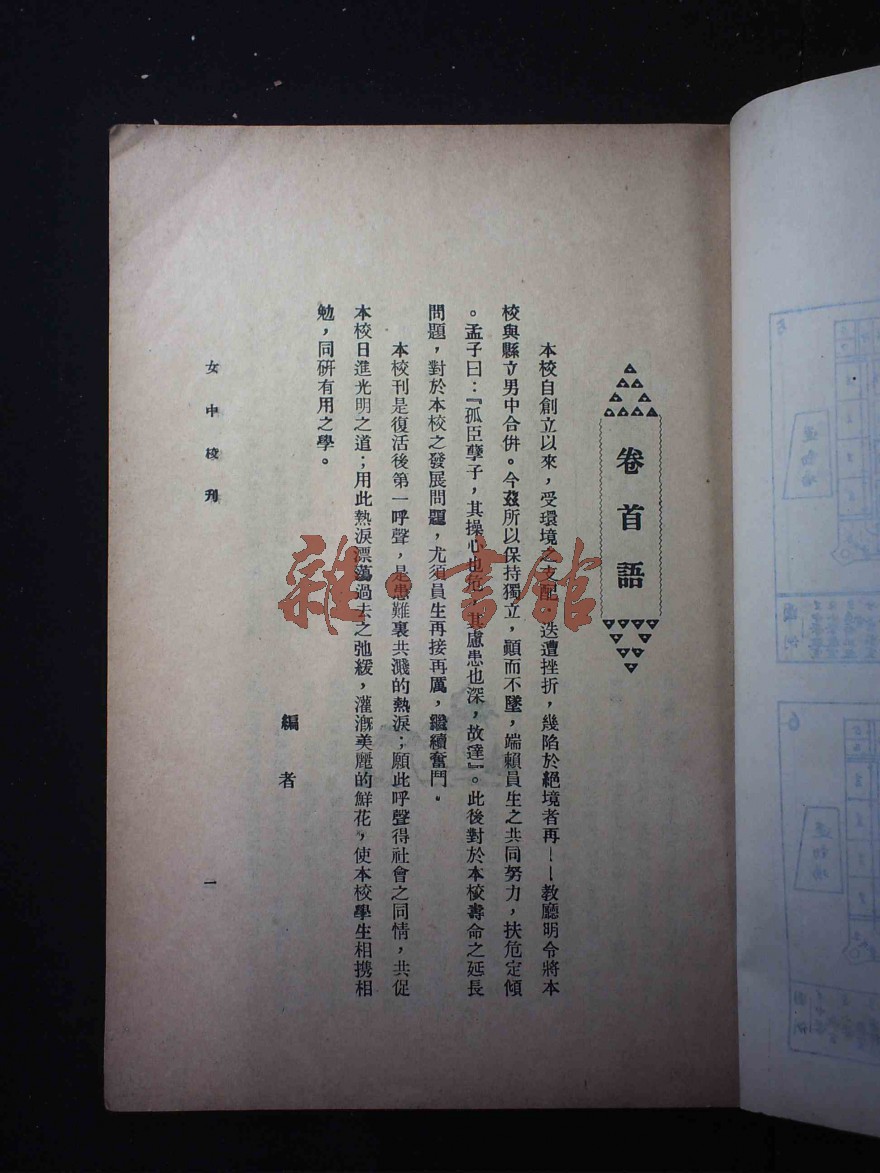 卷首語
本校自創立以來，受環境之支配，迭遭挫折，幾陷於絕境者再——教廳明令將本
校與縣立男中合併。今茲所以保持獨立，顚而不墜，端賴員生之共同努力，扶危定傾
。孟子曰：『孤臣孽子，其操心也危，其慮患也深，故達』。此後對於本校壽命之延長
問題，對於本校之發展問題，尤須員生再接再厲，繼續奮鬥。
本校刊是復活後第一呼聲，是患難裏共濺的熱淚；願此呼聲得社會之同情，共促
本校日進光明之道；用此熱淚漂蕩過去之弛緩，灌漑美麗的鮮花，使本校學生相携相
勉，同研有用之學。
編者
女中校刊
一
雜·書館
運動場
圖例
6
運動場
圖例